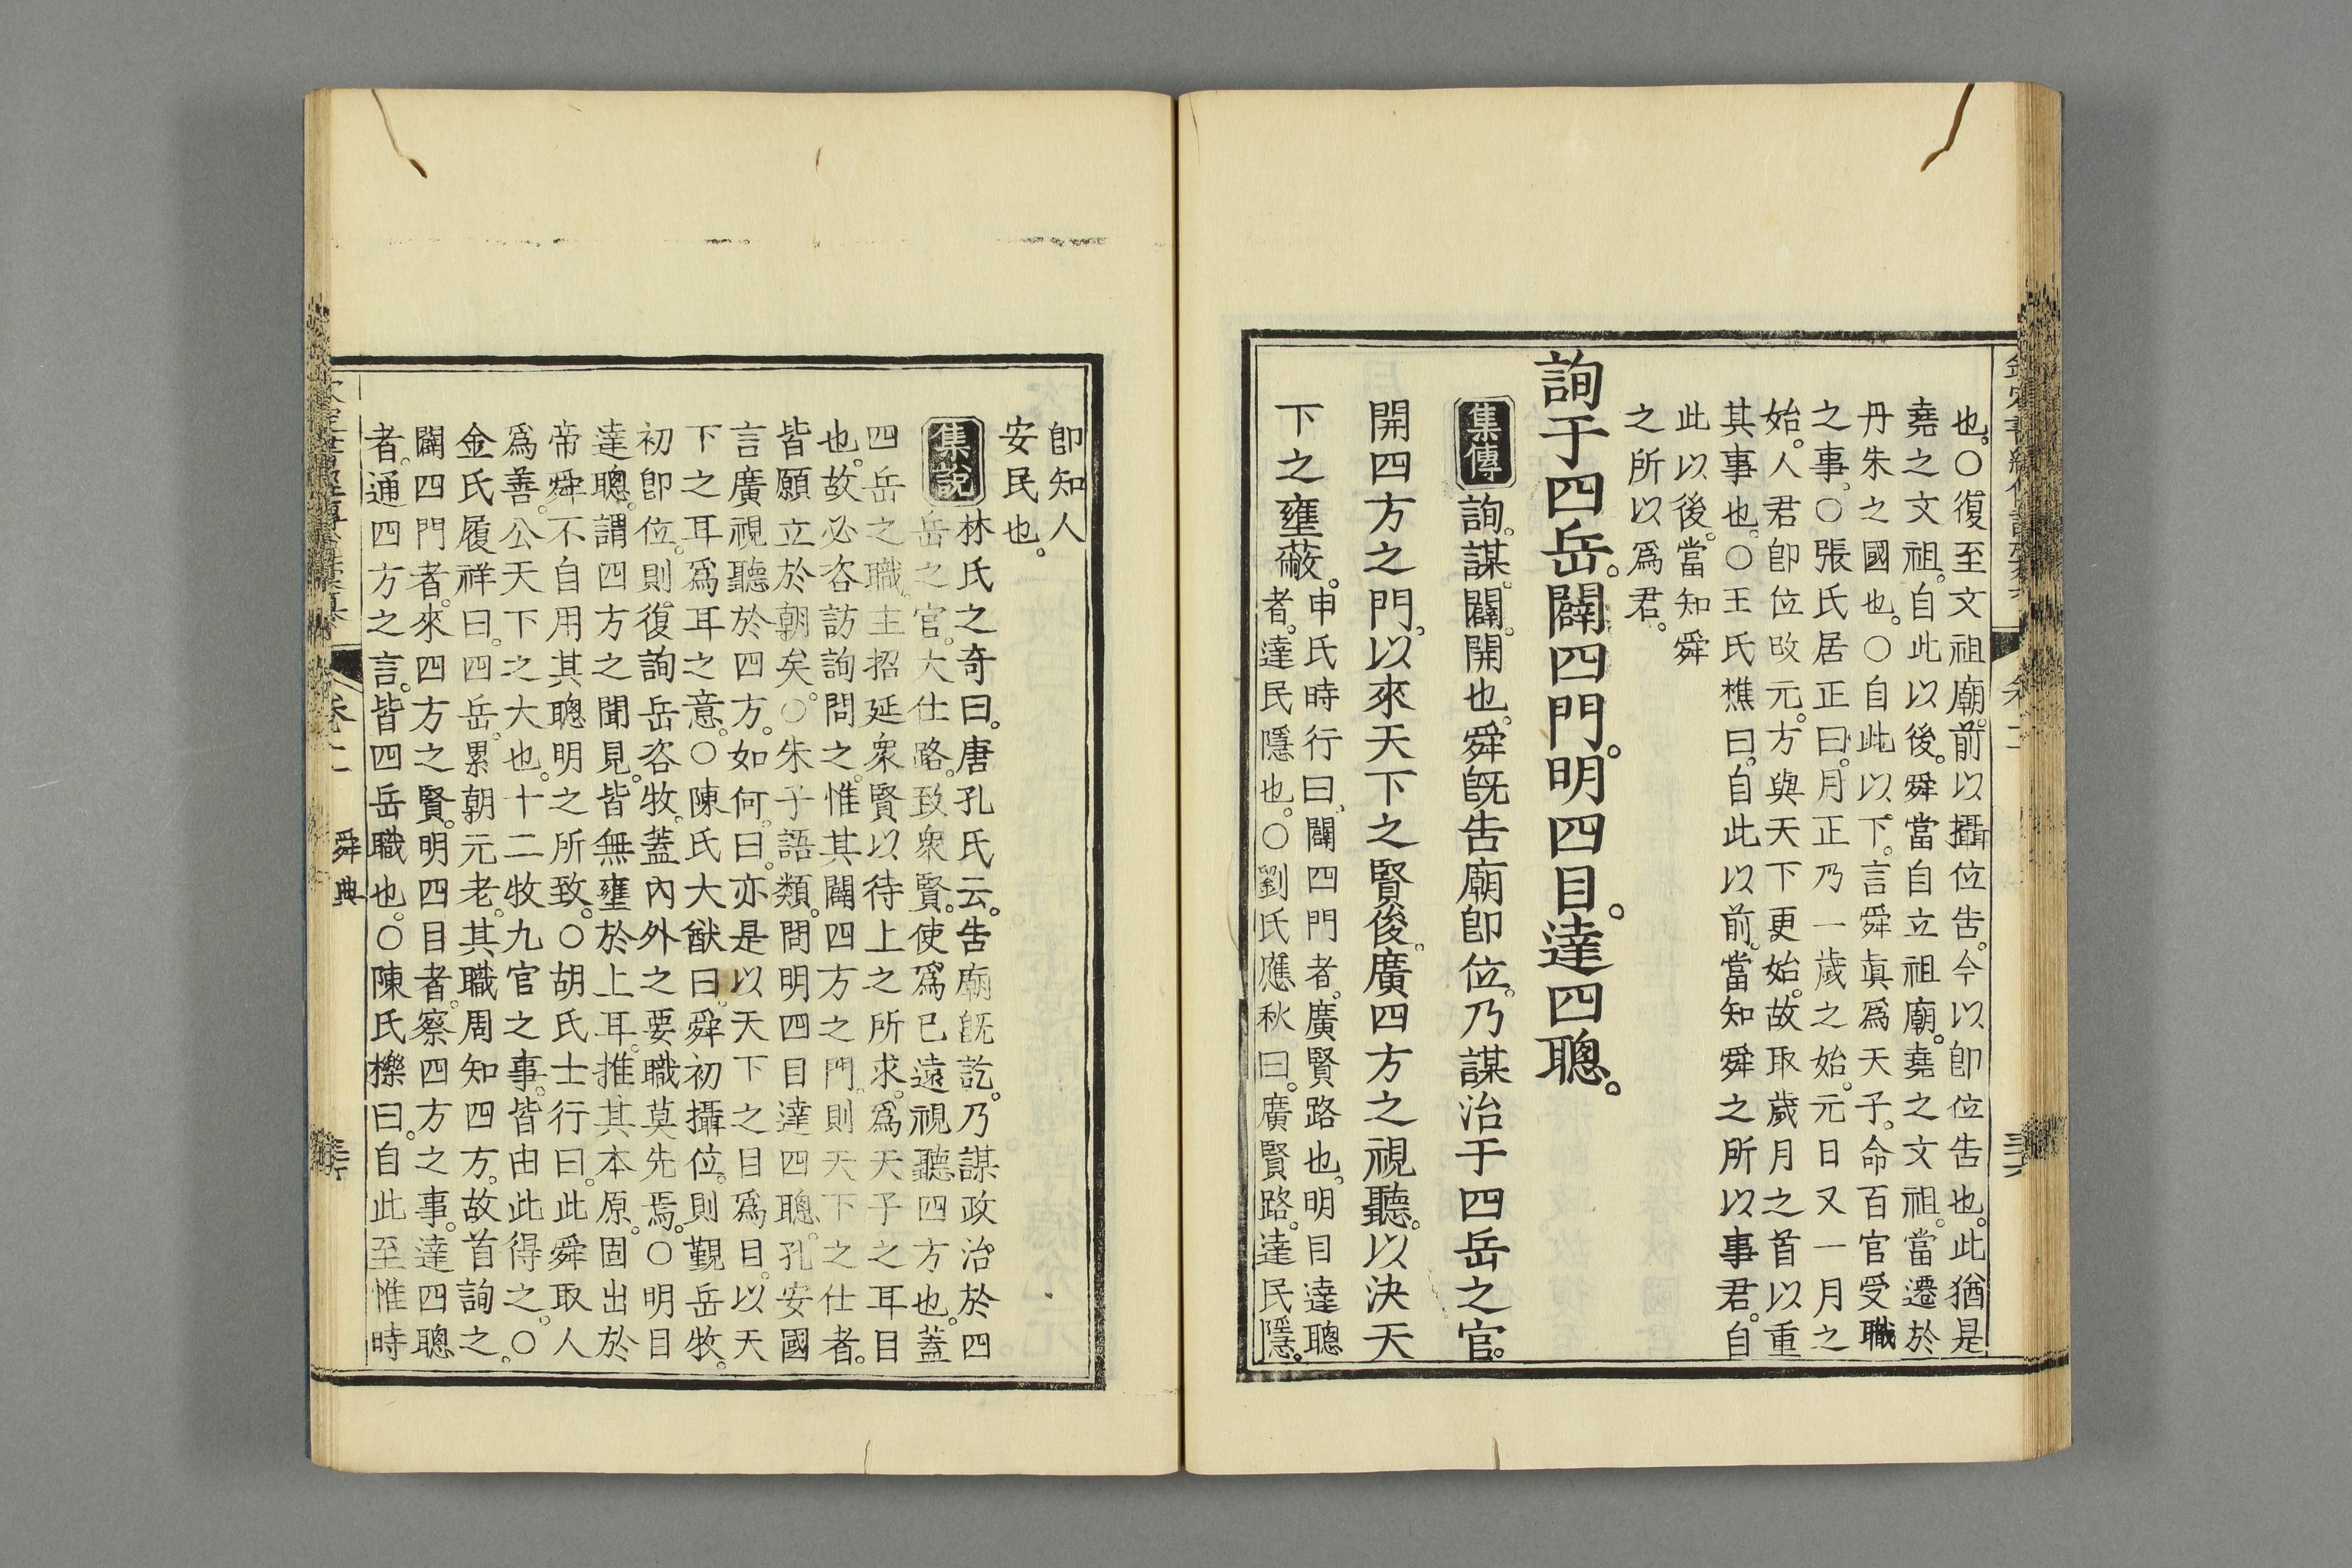 也。○復至文祖廟。前以攝位告。今以卽位告也。此猶是
堯之文祖。自此以後。舜當自立祖廟。堯之文祖。當遷於
丹朱之國也。○自此以下。言舜眞爲天子。命百官受職
之事。○張氏居正曰。月正乃一歲之始。元日又一月之
始。人君卽位改元。方與天下更始。故取歲月之首以重
其事也。○王氏樵曰。自此以前。當知舜之所以事君。自
此以後。當知舜
之所以爲君。
詢于四岳。闢四門。明四目。達四聰。
集傳 詢。謀。闢。開也。舜旣告廟卽位。乃謀治于四岳之官。
開四方之門。以來天下之賢俊。廣四方之視聽。以決天
下之壅蔽。申氏時行曰。闢四門者。廣賢路也。明目達聰
者。達民隱也。○劉氏應秋曰。廣賢路。達民隱。
卽知人
安民也。
集說 林氏之奇曰。唐孔氏云。告廟旣訖。乃謀政治於四
岳之官。大仕路。致衆賢。使爲己遠視聽四方也。蓋
四岳之職。主招延衆賢以待上之所求。爲天子之耳目
也。故必咨訪詢問之。惟其闢四方之門。則天下之仕者。
皆願立於朝矣。○朱子語類。問明四目達四聰。孔安國
言廣視聽於四方。如何。曰。亦是以天下之目爲目。以天
下之耳爲耳之意。○陳氏大猷曰。舜初攝位。則覲岳牧。
初卽位。則復詢岳咨牧。蓋內外之要職莫先焉。○明目
達聰。謂四方之聞見。皆無壅於上耳。推其本原。固出於
帝舜不自用其聰明之所致。○胡氏士行曰。此舜取人
爲善。公天下之大也。十二牧九官之事。皆由此得之。○
金氏履祥曰。四岳。累朝元老。其職周知四方。故首詢之。
闢四門者。來四方之賢。明四目者。察四方之事。達四聰
者。通四方之言。皆四岳職也。○陳氏櫟曰。自此至惟時
舜典